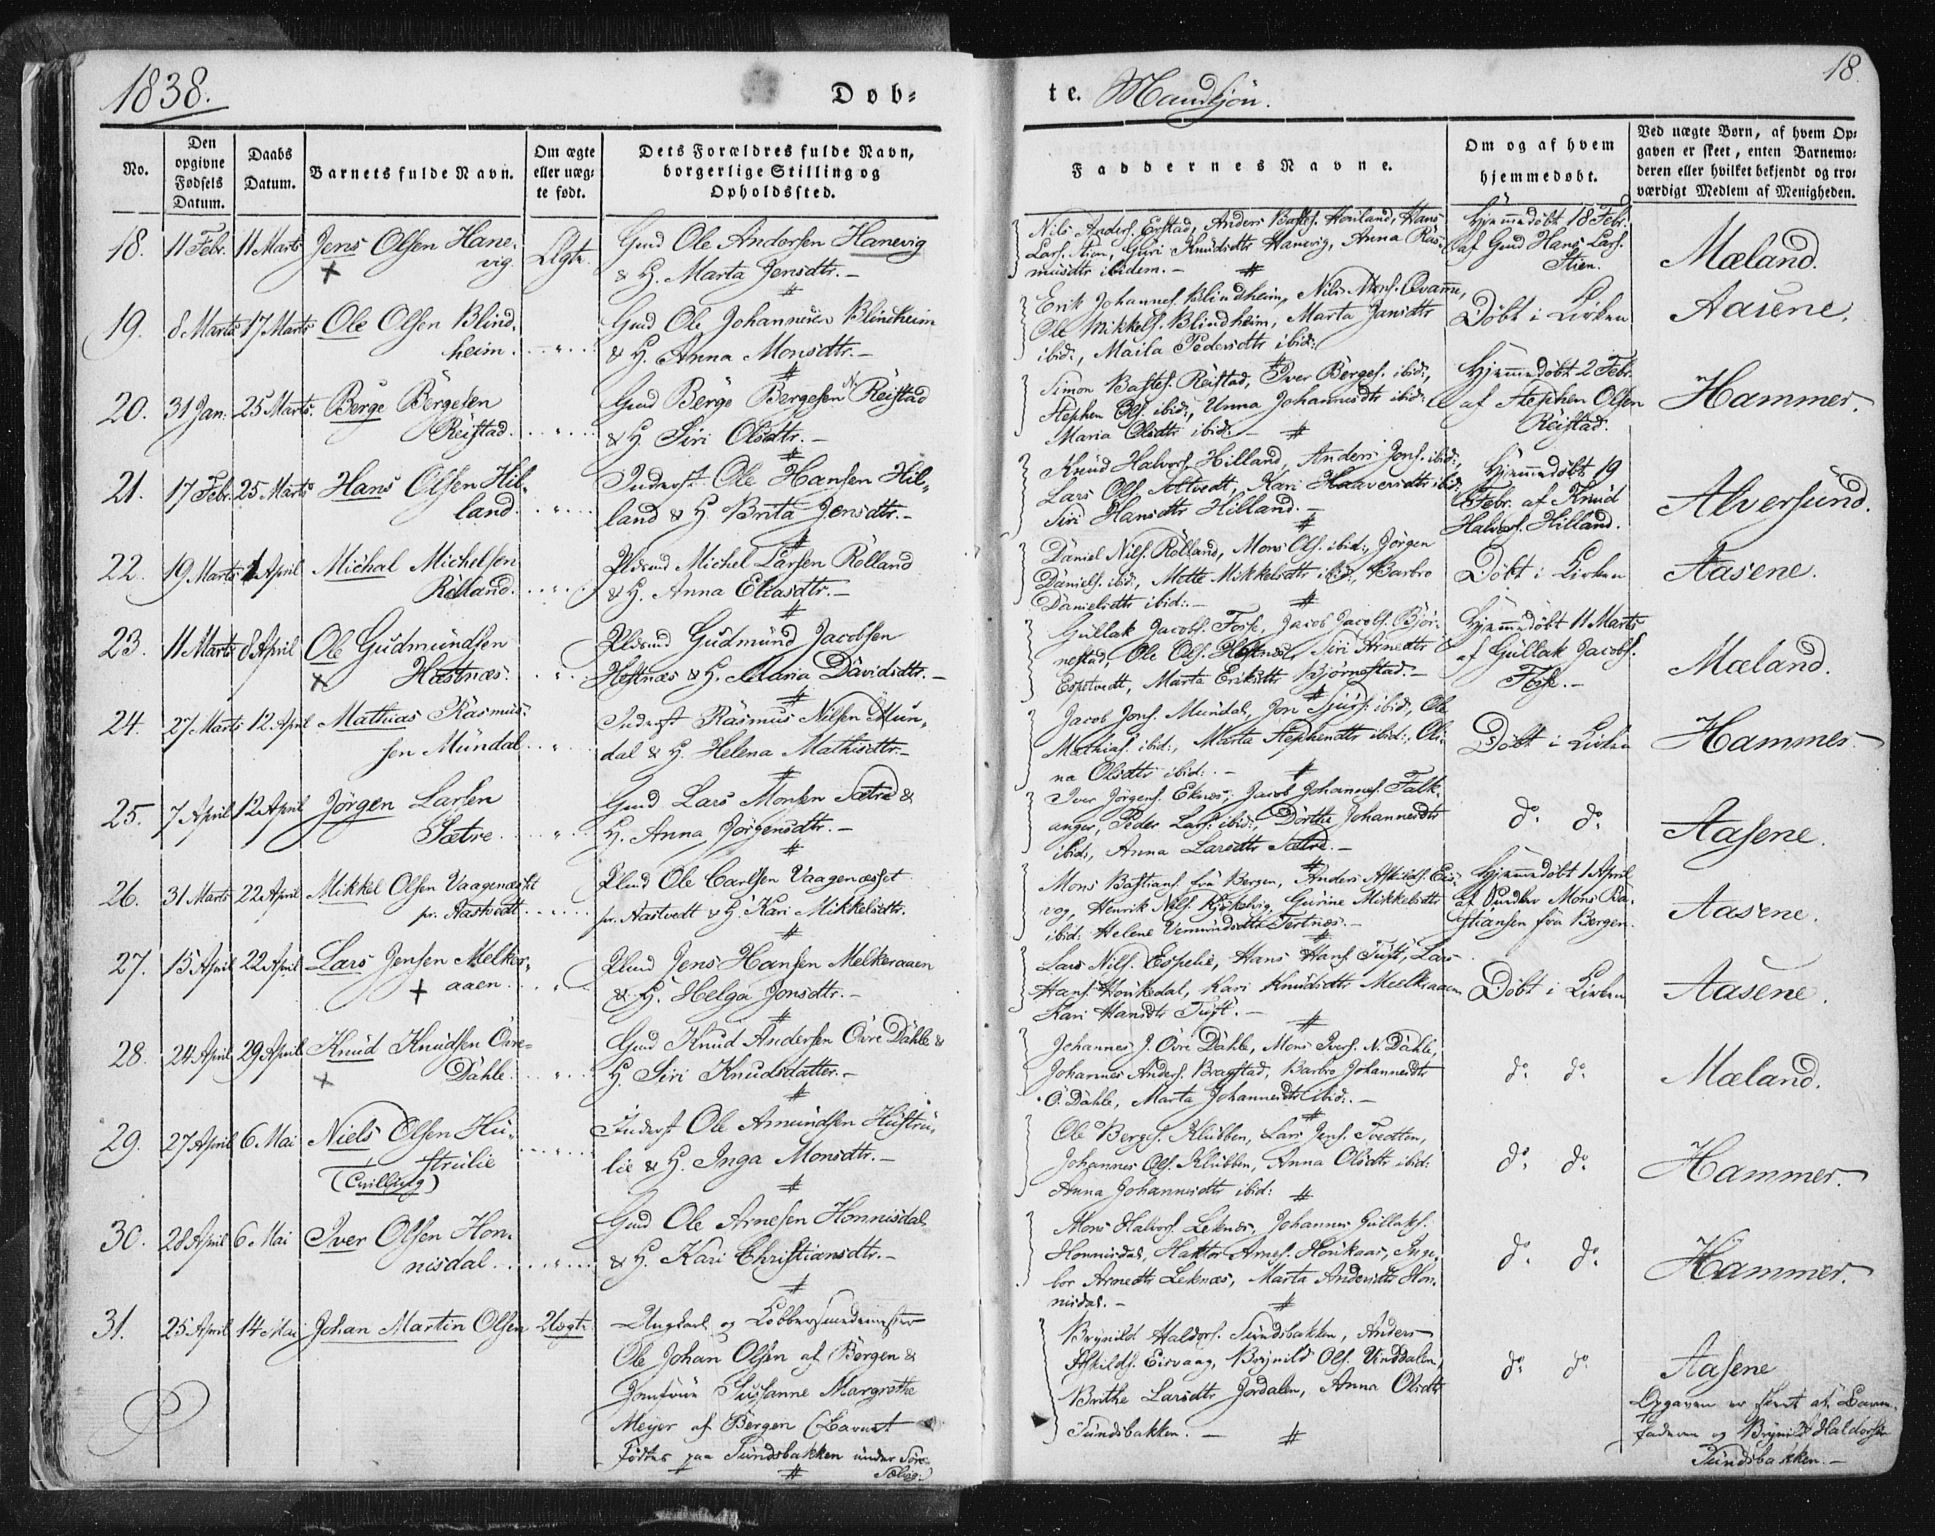 1838.
Døb-
te. Mandkjön.
18.
No.
Den opgivne Fødsels Datum.
Daabs Datum.
Barnets fulde Navn.
Om ægte eller uæg-te født.
Dets Forældres fulde Navn, borgerlige Stilling og Opholdssted.
Faddernes Navne.
Om og af hvem hjemmedøbt.
Ved uægte Børn, af hvem Op-gaven er skeet, enten Barnemo-deren eller hvilket bekjendt og tro-værdigt Medlem af Menigheden.
18. 11 Febr. 11 Marts Jens Olsen Hane-
vig. Ægte
Gmd Ole Andersen Hanevig
& H. Marta Jensdtr. —
Nils Anders. Erstad, Anders Bastes. Houland, Hans
Lars. Stien, Guri Knudsdtr Hanevig, Anna Ras-
musdtr ibidem. —
Hjemmedöbt 18 Febr.
af Gmd Hans Lars.
Stien.
Mæland.
19. 8. Marts 17 Marts Ole Olsen Blind-
heim.
Gmd Ole Johannesen Blindheim
& H. Anna Monsdtr. —
Erik Johannes. Blindheim, Nils Mons. Qvamme,
Ole Mikkels. Blindheim, Marta Jansdtr
ibid:, Maila Pedersdtr ibid:
Döbt i Kirken
Aasene.
20. 31 Jan. 25 Marts. Berge Bergesen
Reistad.
Gmd Berge Bergesen N Reistad
& H. Siri Olsdtr. —
Simon Bastes. Reistad, Iver Berges. ibid:,
Stephen Ols. ibid:, Unna Johannesdtr ibid:
Maria Olsdtr ibid: —
Hjemmedöbt 2 Febr.
af Stephen Olsen
Reistad.
Hammer.
21. 17 Febr. 25 Marts Hans Olsen Hil-
land.
Inderst Ole Hansen Hil-
land & H. Brita Jensdtr. —
Knud Halvors. Hilland, Anders Jons. ibid:,
Lars Ols. Altvedt, Kari Haaversdtr ibid:
Siri Hansdtr Hilland. —
Hjemmedöbt 19
Febr. af Knud
Halvors. Hilland.
Alversund.
22. 19 Marts 1 April Michal Michelsen
Rölland.
Plds.md Michel Larsen Rölland
& H. Anna Eliasdtr. —
Daniel Nils. Rölland, Mons Ols. ibid:, Jörgen
Daniels. ibid:, Mette Mikkelsdtr ibid:, Barbro
Danielsdtr ibid: —
Döbt i Kirken
Aasene.
23. 11 Marts 8 April Ole Gudmundsen
Hastnæs.
Plds.md Gudmund Jacobsen
Hestnæs & H. Maria Davidsdtr. —
Gullak Jacobs. Fosse, Jacob Jacobs. Björ-
nestad, Ole Ols. Hestnæs, Siri Arnedtr
Espetvedt, Marta Eriksdtr Björnestad. —
Hjemmedöbt 11 Marts
af Gullak Jacobs.
Fosse. —
Mæland.
24. 27 Marts 12 April Mathias Rasmus-
sen Mundal
Inderst Rasmus Nilsen Mun-
dal & H. Helena Mathisdtr. —
Jacob Jons. Mundal, Jon Sjurs. ibid:, Ole
Mathias. ibid:, Marta Stephensdtr ibid:, Oli-
na Olsdtr ibid: —
Döbt i Kirken
Hammer.
25. 7 April 12 April Jörgen Larsen
Sætre.
Gmd Lars Monsen Sætre &
H. Anna Jörgensdtr. —
Iver Jörgens. Eknes, Jacob Johannes. Falk-
anger, Peder Lars. ibid:, Dorthe Johannesdtr
ibid:, Anna Larsdtr Sætre. —
do do
Aasene.
26. 31 Marts 22 April Mikkel Olsen Vaagenæsset
pr. Aastvedt
Plmd Ole Carlsen Vaagenæsset
pr. Aastvedt & H. Kari Mikkelsdtr.
Mons Bastians. fra Bergen, Anders Askilds. Eis-
vog, Henrik Nils. Kjökelvig, Gurine Mikkelsdtr
ibid: Helene Vemundsdtr Tertnæs. —
Hjemmedöbt 1 April
af Mons Ba-
stiansen fra Bergen.
Aasene.
27. 15 April 22 April Lars Jensen Melker-
aaen.
Plmd Jens Hansen Melkeraaen
& H. Helga Jonsdtr. —
Lars Nils. Espelie, Hans Hans. Tuft, Lars
Hans. Houkedal, Kari Knudsdtr Meelkraaen
Kari Hansdtr Tuft. —
Döbt i Kirken
Aasene.
28. 24 April 29 April Knud Knudsen Övre-
Dahle.
Gmd Knud Andersen Övre Dahle &
H. Siri Knudsdatter. —
Johannes J. Övre Dahle, Mons Ivers. N. Dahle,
Johannes Anders. Bragstad, Barbro Johannesdtr
Ö. Dahle, Marta Johannesdtr ibid: —
do do
Mæland.
29. 27 April 6 Mai Niels Olsen Hu-
strulie
(Tvilling)
Inderst Ole Amundsen Hustru-
lie & H. Inga Monsdtr. —
Ole Berges. Klubben, Lars Jens. Tvedten,
Johannes Ols. Klubben, Anna Olsdtr ibid:
Anna Johannesdtr ibid:
do do
Hammer.
30. 28 April 6. Mai Iver Olsen Hon-
nisdal.
Gmd Ole Arnesen Honnisdal
& H. Kari Christiansdtr. —
Mons Halvors. Leknes, Johannes Gullaks.
Honnisdal, Haktor Arnes. Houkaas, Inge-
bor Arnedtr Leknæs, Marta Andersdtr Hon-
nisdal. —
do do
Hammer.
31. 25 April 14 Mai Johan Martin Olsen Uægte.
Ungkarl og Kobbersmedemester
Ole Johan Olsen af Bergen &
Jomfrue Susanne Margrethe
Meyer af Bergen (Barnet
födtes paa Sundsbakken under Söre
Salvig.)
Brynild Haldors. Sundsbakken, Anders
Askilds. Eisvaag, Brynild Ols. Vinddalen,
Brithe Larsdtr Jordalen, Anna Olsdtr
Sundsbakken. —
do do
Aasene
Opgaven er skeet af Barne-
faderen og Brynild Haldorsen
Sundsbakken. —